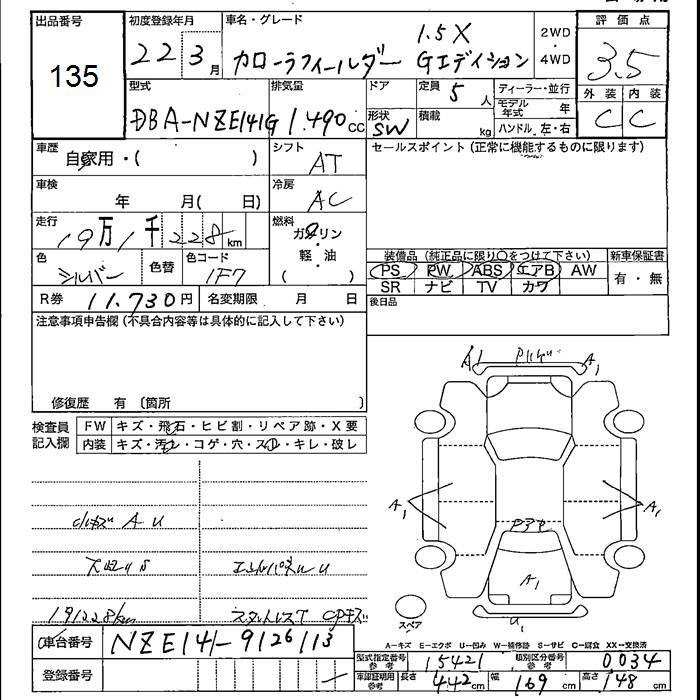 出品番号
135
初度登録年月
22 3月
車名・グレード
1.5X
カローラフィールダー Gエディション
2WD
・
4WD
評価点
3.5
外装 内装
C C
型式
DBA-NZE141G
排気量
1.490cc
ドア
形状
SW
定員
5人
積載
kg
ディーラー・並行
モデル年式 年
ハンドル 左・右
車歴
自家用・( )
シフト
AT
セールスポイント (正常に機能するものに限ります)
車検
年 月( 日)
冷房
AC
走行
19万1千228km
燃料
ガソリン
・
軽・油
( )
色
シルバー
色替
色コード
1F7
装備品 (純正品に限り○をつけて下さい)
PS PW ABS エアB AW
SR ナビ TV カワ
新車保証書
有・無
R券 11.730円
名変期限 月 日
後日品
注意事項申告欄 (不具合内容等は具体的に記入して下さい)
修復歴 有 〔箇所 〕
検査員
記入欄
FW キズ・飛石・ヒビ割・リペア跡・X要
内装 キズ・汚レ・コゲ・穴・スレ・キレ・破レ
小キズ A U
191228km
CPキズ
A1 A1
A1 A1
A1
U1
スペア
A-キズ E-エクボ U-凹み W-補修跡 S-サビ C-腐食 XX-交換済
車台番号
NZE141-9126113
登録番号
型式指定番号
参考
15421
類別区分番号
参考
0034
車庫証明用
参考
長さ 442cm
幅 169cm
高さ 148cm